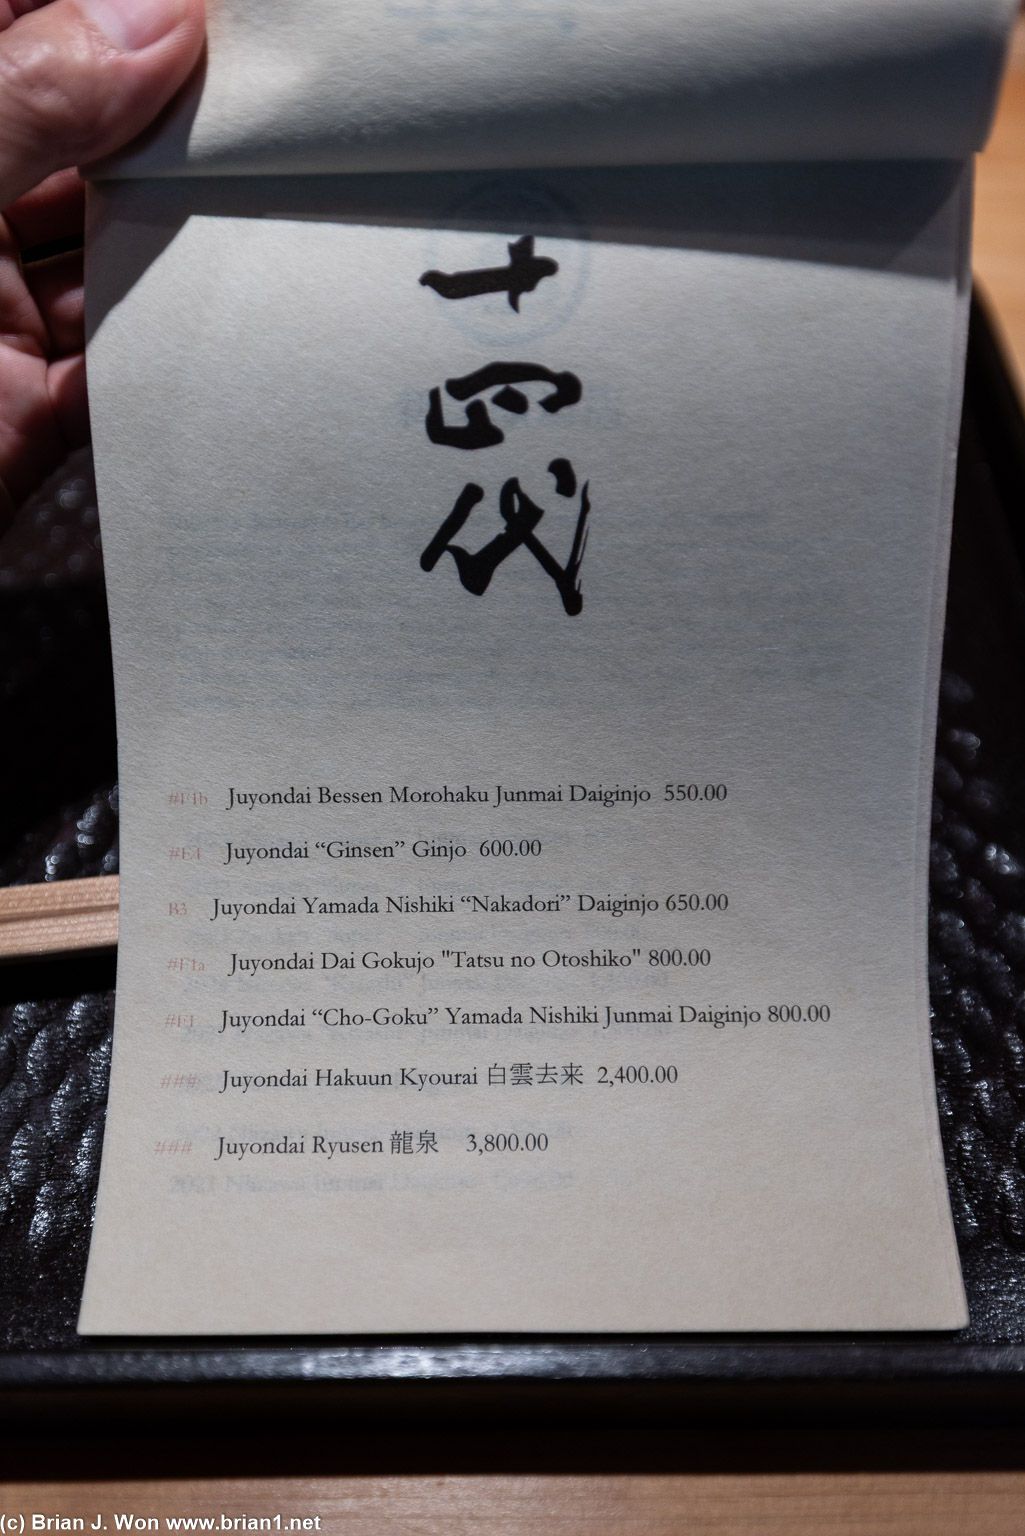 十
四
代
#F1b Juyondai Bessen Morohaku Junmai Daiginjo 550.00
#E4 Juyondai “Ginsen” Ginjo 600.00
B3 Juyondai Yamada Nishiki “Nakadori” Daiginjo 650.00
#F1a Juyondai Dai Gokujo "Tatsu no Otoshiko" 800.00
Juyondai “Cho-Goku” Yamada Nishiki Junmai Daiginjo 800.00
### Juyondai Hakuun Kyourai 白雲去来 2,400.00
### Juyondai Ryusen 龍泉 3,800.00
(c) Brian J. Won www.brian1.net